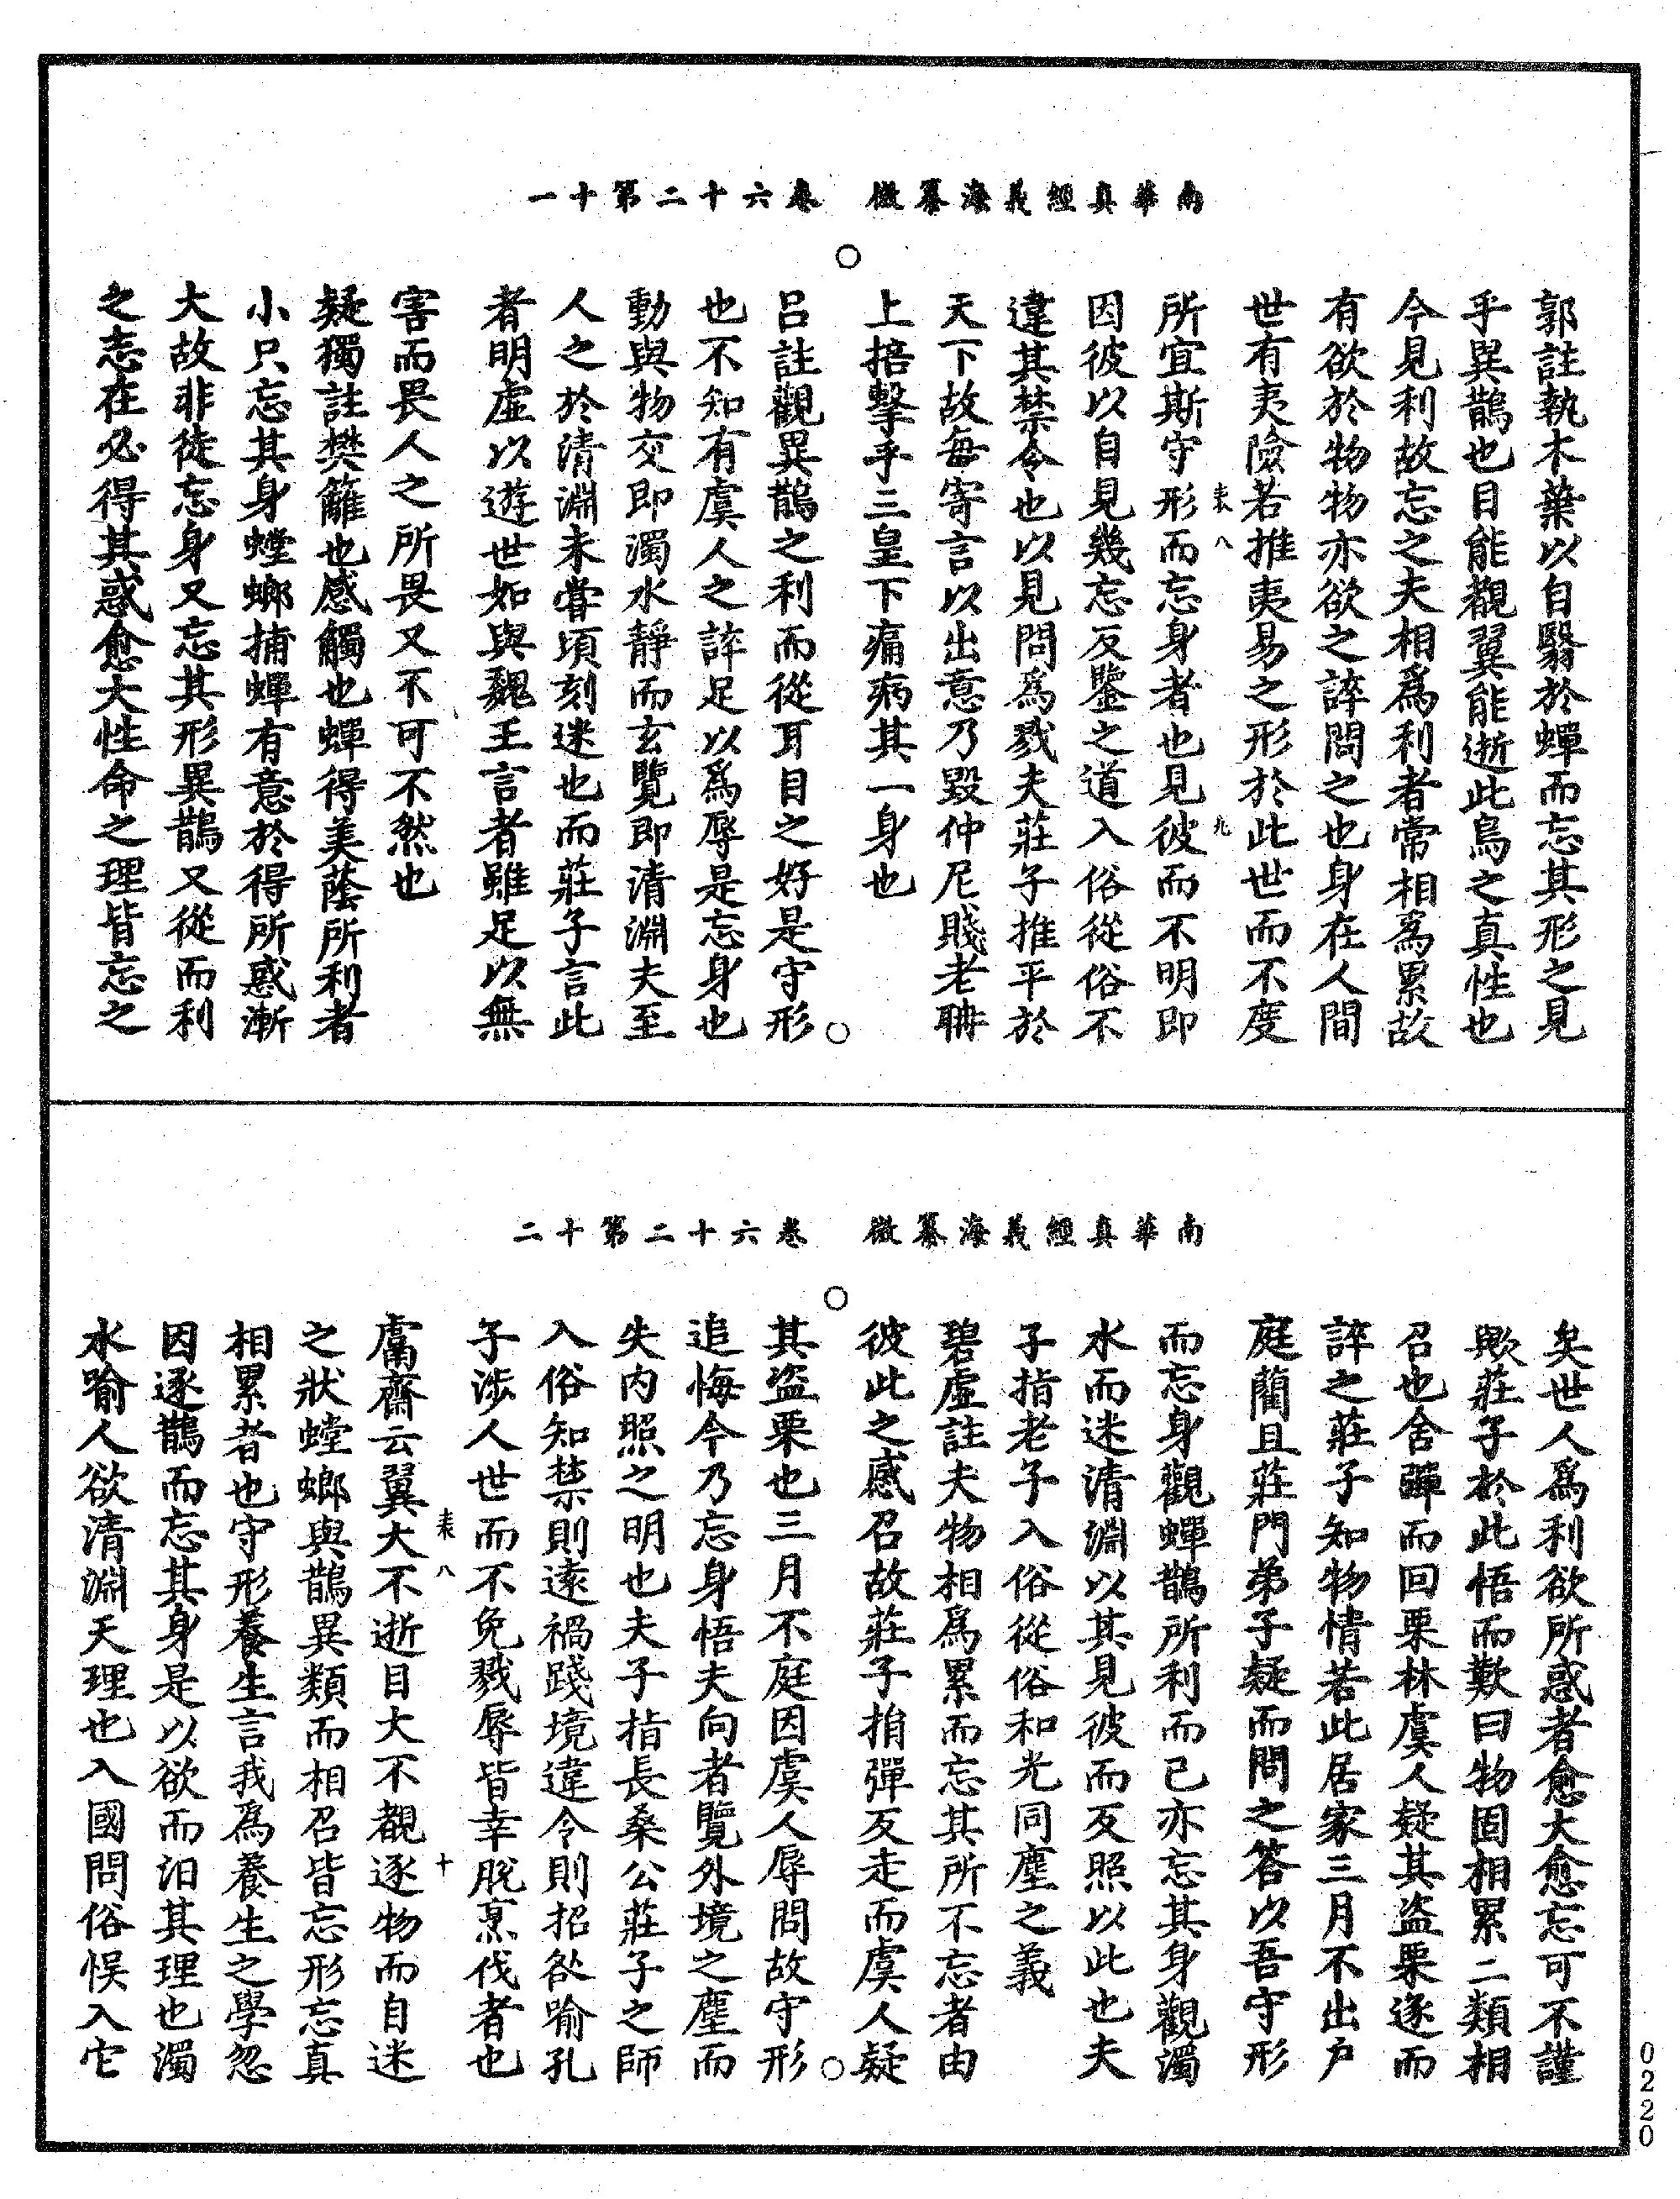 南華真經義海纂微　卷六十二第十一
郭註執木葉以自翳於蟬而忘其形之見
乎異鵲也目能覩翼能逝此鳥之真性也
今見利故忘之夫相爲利者常相爲累故
有欲於物物亦欲之誶問之也身在人間
世有夷險若推夷易之形於此世而不度
所宜斯守形而忘身者也見彼而不明即
因彼以自見幾忘反鑒之道入俗從俗不
違其禁令也以見問爲戮夫莊子推平於
天下故每寄言以出意乃毀仲尼賤老聃
上掊擊乎三皇下痛病其一身也
呂註觀異鵲之利而從耳目之好是守形
也不知有虞人之誶足以爲辱是忘身也
動與物交即濁水靜而玄覽即清淵夫至
人之於清淵未嘗頃刻迷也而莊子言此
者明虛以遊世如與魏王言者雖足以無
害而畏人之所畏又不可不然也
疑獨註樊籬也感觸也蟬得美蔭所利者
小只忘其身螳螂捕蟬有意於得所惑漸
大故非徒忘身又忘其形異鵲又從而利
之志在必得其惑愈大性命之理皆忘之
耒八
九
南華真經義海纂微　卷六十二第十二
矣世人爲利欲所惑者愈大愈忘可不謹
歟莊子於此悟而歎曰物固相累二類相
召也舍彈而回栗林虞人疑其盜栗逐而
誶之莊子知物情若此居家三月不出戶
庭藺且莊門弟子疑而問之答以吾守形
而忘身觀蟬鵲所利而已亦忘其身觀濁
水而迷清淵以其見彼而反照以此也夫
子指老子入俗從俗和光同塵之義
碧虛註夫物相爲累而忘其所不忘者由
彼此之感召故莊子捐彈反走而虞人疑
其盜栗也三月不庭因虞人辱問故守形
追悔今乃忘身悟夫向者覽外境之塵而
失内照之明也夫子指長桑公莊子之師
入俗知禁則遠禍踐境違令則招咎喻孔
子涉人世而不免戮辱皆幸脫烹伐者也
鬳齋云翼大不逝目大不覩逐物而自迷
之狀螳螂與鵲異類而相召皆忘形忘真
相累者也守形養生言我爲養生之學忽
因逐鵲而忘其身是以欲而汩其理也濁
水喻人欲清淵天理也入國問俗悞入它
耒八
十
0220